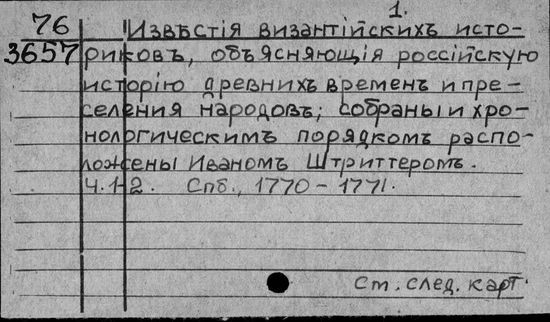 1.
76 Извѣстія византійскихъ исто-
3657 риковъ, объясняющія россійскую
исторію древнихъ временъ и пре-
селения народовъ; собраны и хро-
нологическимъ порядкомъ распо-
ложены Иваномъ Штриттеромъ.
Ч. 1-2. Спб., 1770-1771.
Ст. след. карт.